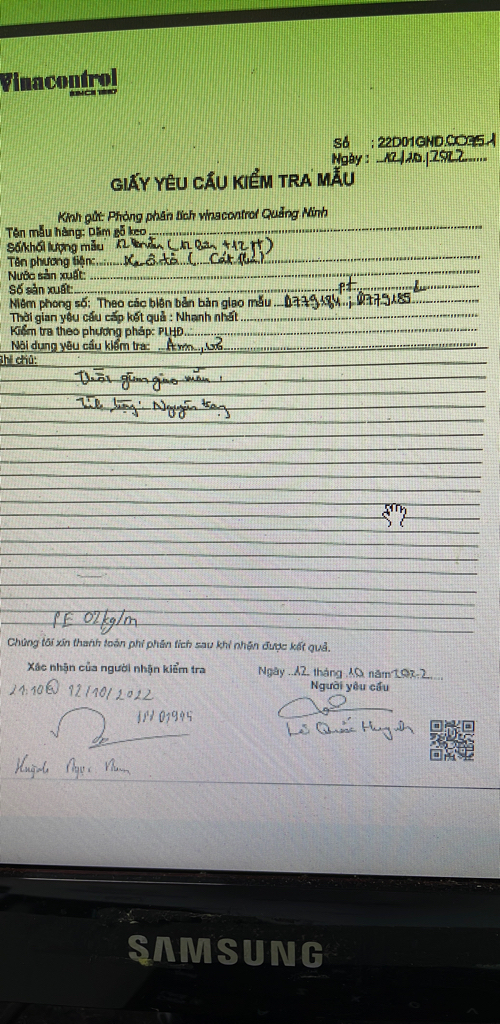 Vinacontrol
SINCE 1957
Số : 22D01GND.00351
Ngày : 12/10/2022
GIẤY YÊU CẦU KIỂM TRA MẪU
Kính gửi: Phòng phân tích vinacontrol Quảng Ninh
Tên mẫu hàng: Dăm gỗ keo
Số/khối lượng mẫu 12 mẫu (
Tên phương tiện: Xe ô tô (
Nước sản xuất:
Số sản xuất:
Niêm phong số: Theo các biên bản bàn giao mẫu 0779184 ; 0779185
Thời gian yêu cầu cấp kết quả : Nhanh nhất
Kiểm tra theo phương pháp: PLHĐ
Nội dung yêu cầu kiểm tra: Ẩm, vỏ
Ghi chú:
giao mẫu :
Nguyên trạng
PE 02kg/m
Chúng tôi xin thanh toán phí phân tích sau khi nhận được kết quả.
Xác nhận của người nhận kiểm tra
Ngày 12 tháng 10 năm 2022
Người yêu cầu
12/10/2022
01945
Lê Quốc Huynh
Huỳnh Ngọc
SAMSUNG